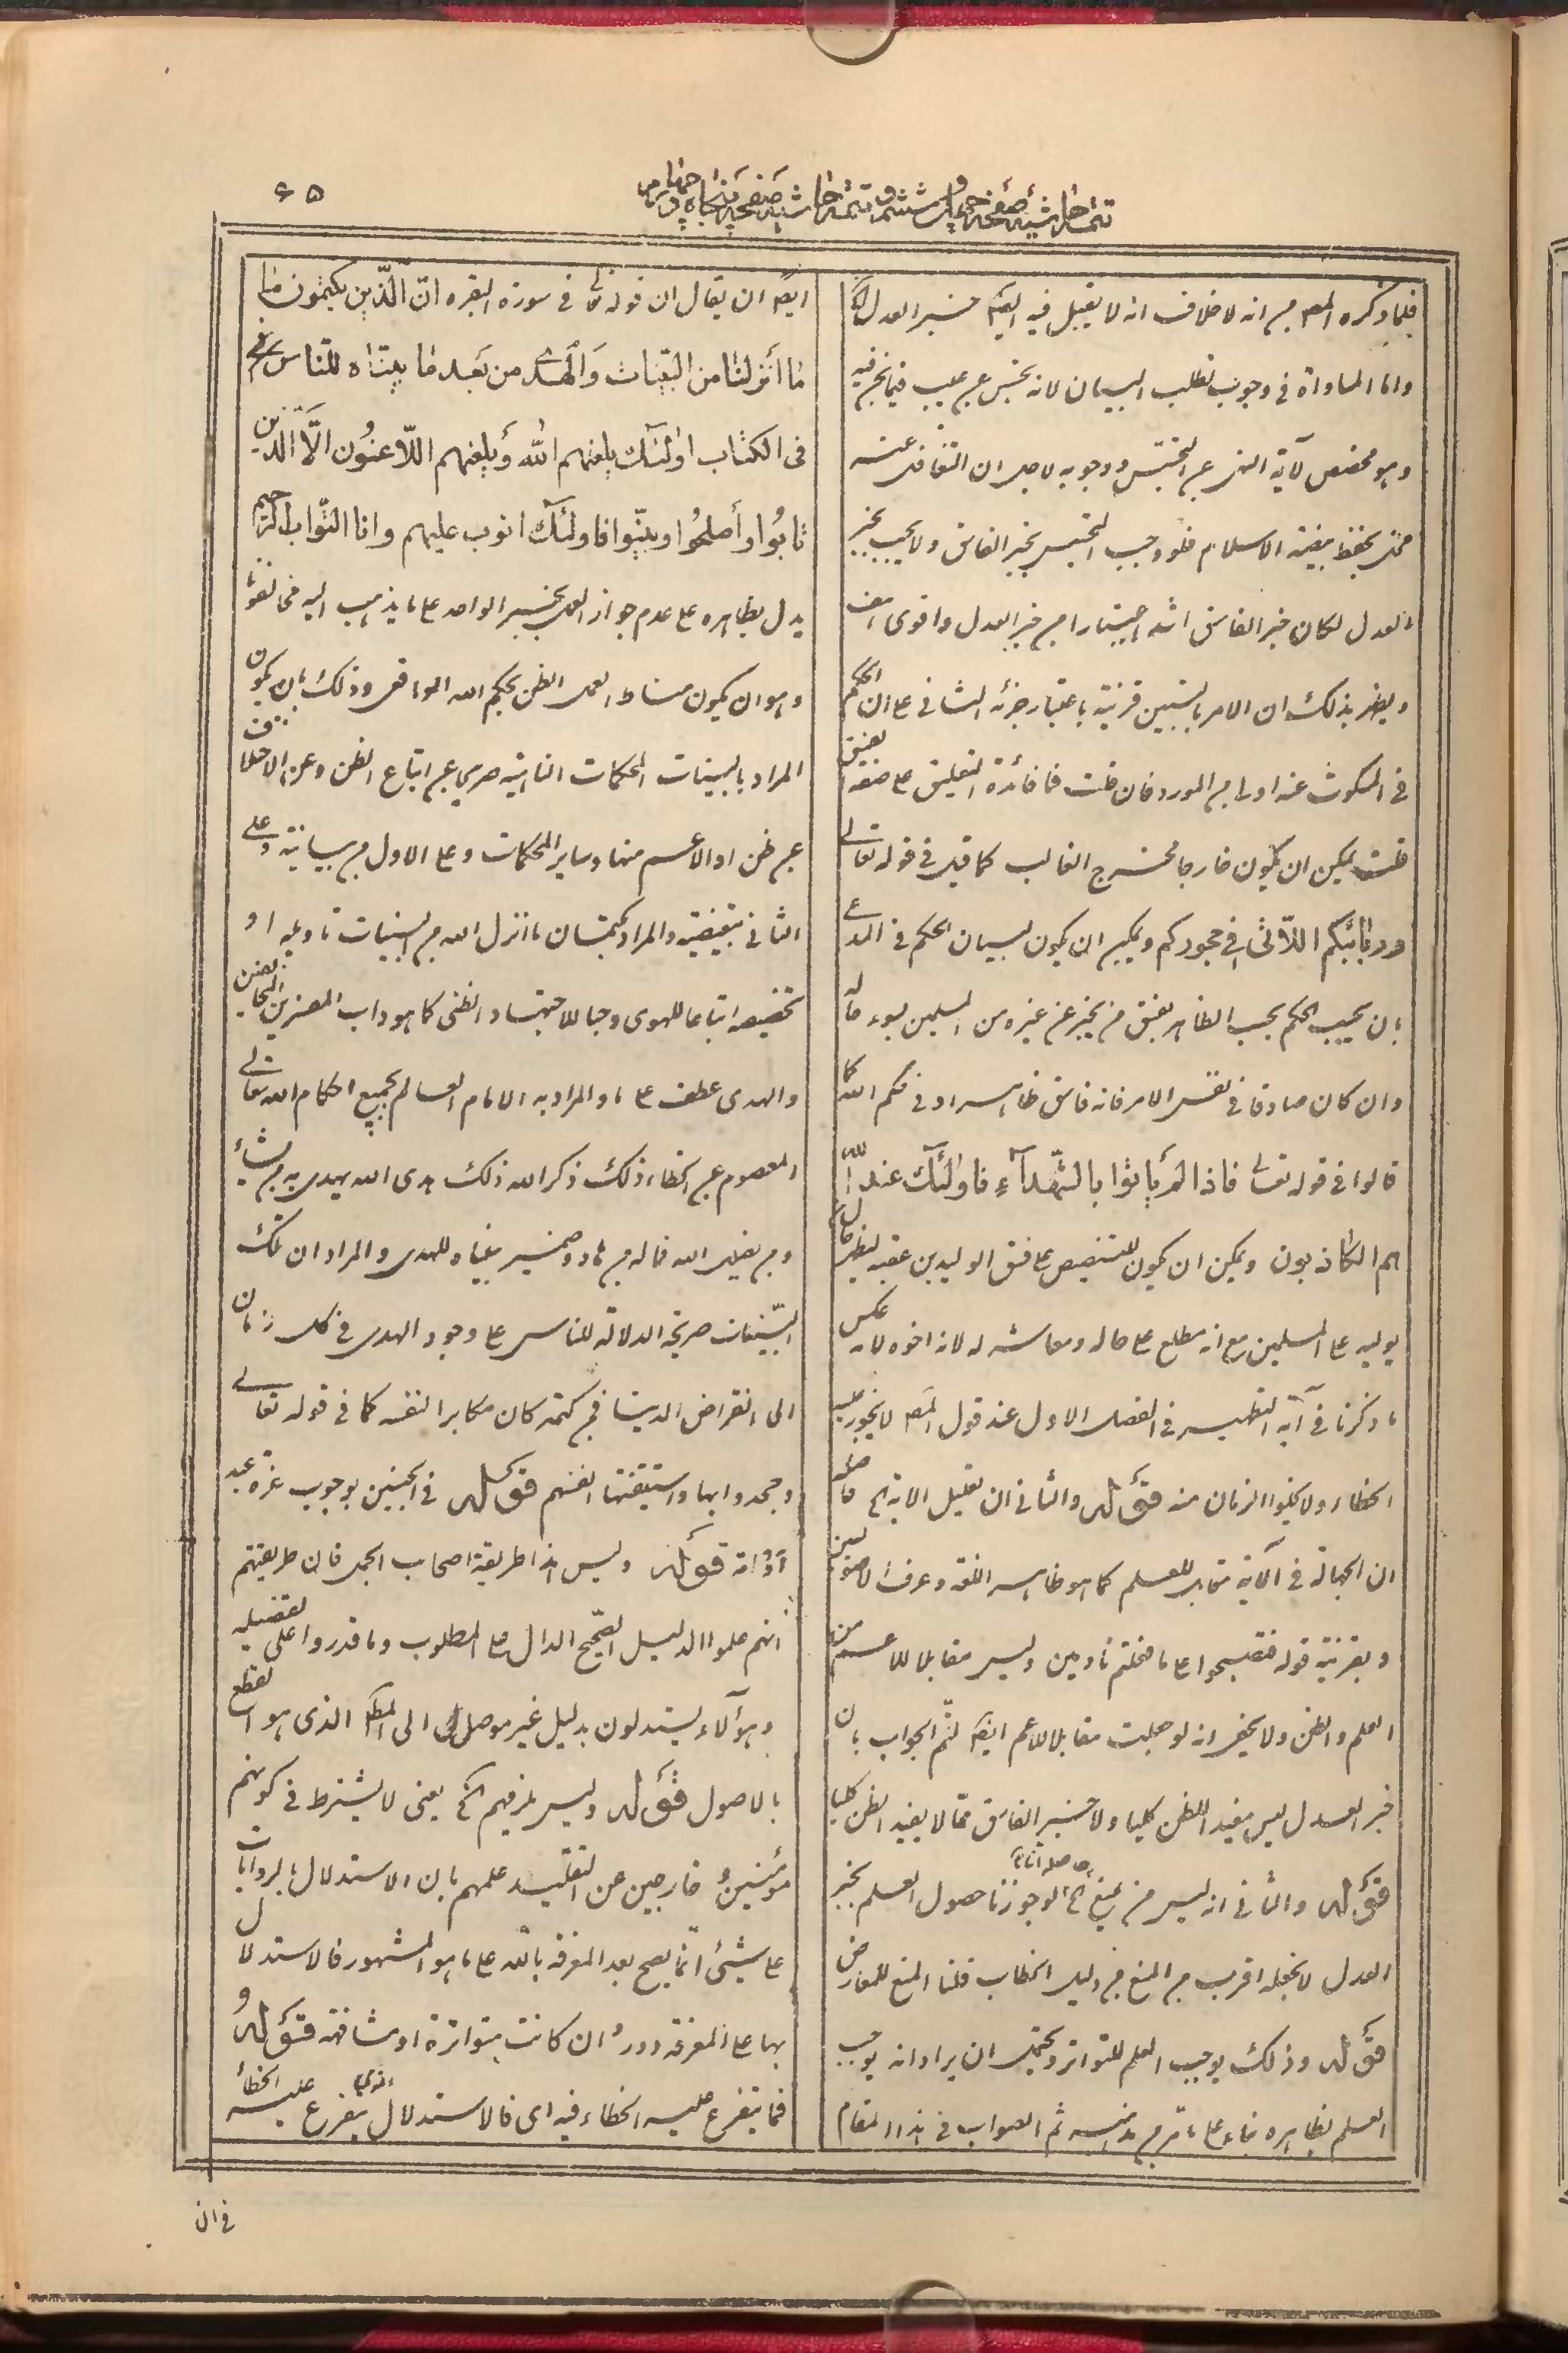 ۶۵
تتمة حاشية صفحه چهل و ششم و تتمة حاشية صفحه پنجاه و چهارم
فلما ذكره المصـ من انه لا خلاف انه لا يقبل فيه ايضا خبر العدل
واما المساواة في وجوب تطلب البيان لانه تجسس عن عيب فيما يخبر فيه
وهو مخصص لآية النهي عن التجسس ووجوبه لاجل ان التغافل عنه
مخل بحفظ بيضة الاسلام فلو وجب التجسس بخبر الفاسق ولا يجب بخبر
العدل لكان خبر الفاسق اشد اعتبارا من خبر العدل واقوى
ويظهر بذلك ان الامر بالتبيين قرينة باعتبار جزئه الثاني على ان الحكم
في المسكوت عنه اولى من المورد فان قلت فما فائدة التعليق على صفة الفسق
قلت يمكن ان يكون خارجا مخرج الغالب كما قيل في قوله تعالى
وربائبكم اللاتى في حجوركم ويمكن ان يكون لبيان الحكم في المدعى
بان يجب الحكم بحسب الظاهر بفسق من يخبر عن غيره من المسلمين بسوء
وان كان صادقا في نفس الامر فانه فاسق ظاهرا وفي حكم الله كما
قالوا في قوله تعالى فاذا لم يأتوا بالشهدآء فاولئك عند الله
هم الكاذبون ويمكن ان يكون للتنصيص على فسق الوليد بن عقبه ليظهر حال
يوليه على المسلمين مع انه مطلع على حاله ومعاشر له لانه اخوه لامه عكس
ما ذكرنا في آية التطهير في الفصل الاول عند قول المصـ لا يجوز عليه
الخطاء ولا يخلوا الزمان منه قوله والثاني ان تعليل الاية الخ حاصله
ان الجهالة في الآية مقابل للعلم كما هو ظاهر اللغة وعرف الاصوليين
وبقرينة قوله فتصبحوا على ما فعلتم نادمين وليس مقابلا للاعم من
العلم والظن ولا يخفى انه لو جعلت مقابلا للاعم ايضا لتم الجواب بان
خبر العدل ليس مفيدا للظن كليا ولا خبر الفاسق مما لا يفيد الظن كليا
قوله والثاني انه ليس من يمنع الخ حاصله انا لو جوزنا حصول العلم بخبر
العدل لا نجعله اقرب من المنع من دليل الخطاب قلنا المنع للمعارض
قوله وذلك يوجب العلم للتواتر ويحتمل ان يراد انه يوجب
العلم بظاهره بناء على ما مر من مذهبه ثم الصواب في هذا المقام
ايضا ان يقال ان قوله تعالى في سورة البقره ان الذين يكتمون ما
ما أنزلنا من البينات والهدى من بعد ما بيناه للناس
فى الكتاب اولئك يلعنهم الله ويلعنهم اللاعنون الا الذين
تابوا وأصلحوا وبينوا فاولئك اتوب عليهم وانا التواب الرحيم
يدل بظاهره على عدم جواز العمل بخبر الواحد على ما يذهب اليه مخالفونا
وهو ان يكون مناط العمل الظن بحكم الله الواقعى وذلك بان يكون
المراد بالبينات المحكمات الناهية صريحا عن اتباع الظن وعن الاختلاف
عن ظن او الاعم منها وساير المحكمات وعلى الاول من بيانية وعلى
الثاني تبعيضية والمراد بكتمان ما انزل الله من البينات تاويله او
تخصيصه اتباعا للهوى وحبا للاجتهاد الظنى كما هو داب المفسرين المخالفين
والهدى عطف على ما والمراد به الامام العالم بجميع احكام الله تعالى
المعصوم عن الخطاء ذلك ذكر الله ذلك هدى الله يهدى به من يشاء
ومن يضلل الله فماله من هاد وضمير بيناه للهدى والمراد ان تلك
البينات صريحة الدلالة للناس على وجود الهدى في كل زمان
الى انقراض الدنيا فمن كتمه كان مكابرا لنفسه كما في قوله تعالى
وجحدوا بها واستيقنتها انفسهم قوله في الجنين بوجوب غرة عبد
او امة قوله وليس هذا طريقة اصحاب الجمل فان طريقتهم
انهم علموا الدليل الصحيح الدال على المطلوب وما قدروا على تفصيله
وهؤلآء يستدلون بدليل غير موصل الى المط الذى هو القطع
بالاصول قوله وليس يلزمهم الخ يعنى لا يشترط في كونهم
مؤمنين و خارجين عن التقليد علمهم بان الاستدلال بالروايات
على شيئ انما يصح بعد المعرفة بالله على ما هو المشهور فالاستدلال
بها على المعرفة دور وان كانت متواترة او مشافهة قوله و
فما يتفرع عليه الخطاء فيه اى فالاستدلال الذي يتفرع عليه الخطأ
في ان